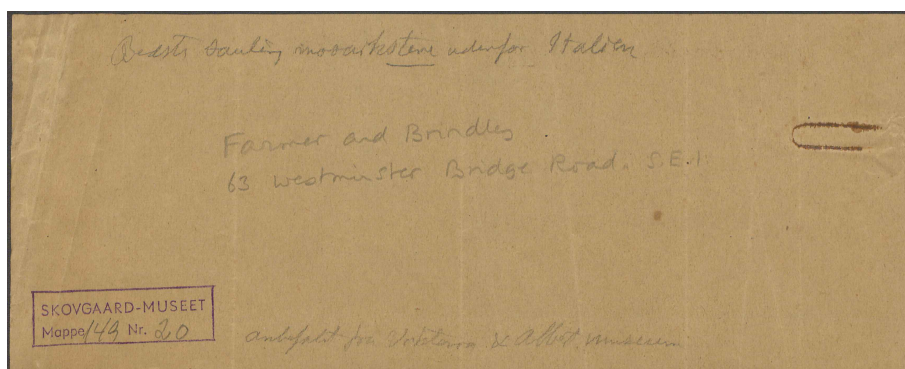 Bedste Samling mosaikstene udenfor Italien
Farmer and Brindley
63 Westminster Bridge Road. S.E.1.
SKOVGAARD-MUSEET
Mappe 149 Nr. 20
anbefalt fra Viktoria & Albert Museum